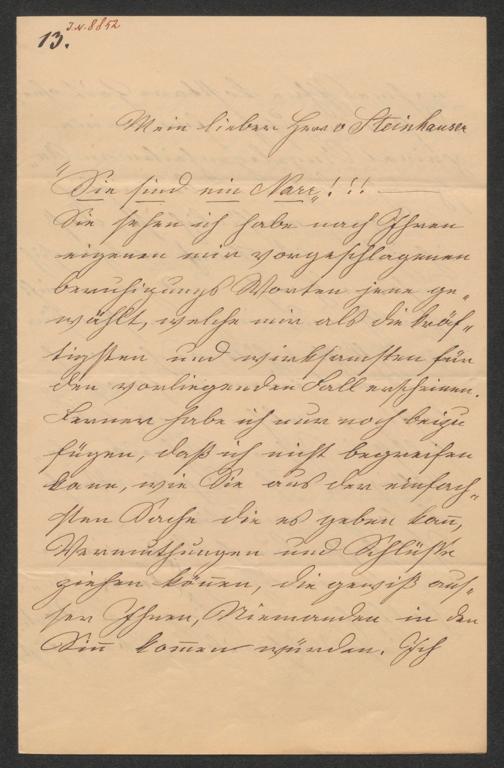 J.N. 8852
13.
Mein lieber Herr v Steinhauser
"Sie sind ein Narr"!!!
Sie sehen ich habe nach Ihren
eigenen mir vorgeschlagenen
beruhigungs Worten jene ge-
wählt, welche mir als die kräf-
tigsten und wirksamsten für
den vorliegenden Fall erscheinen.
Ferner habe ich nur noch beizu
fügen, daß ich nicht begreifen
kann, wie Sie aus der einfach-
sten Sache die es geben kan̄,
Vermuthungen und Schlüsse
ziehen kön̄en, die gewiß aus-
ser Ihnen, Niemanden in den
Sin̄ kom̄en würden. Ich